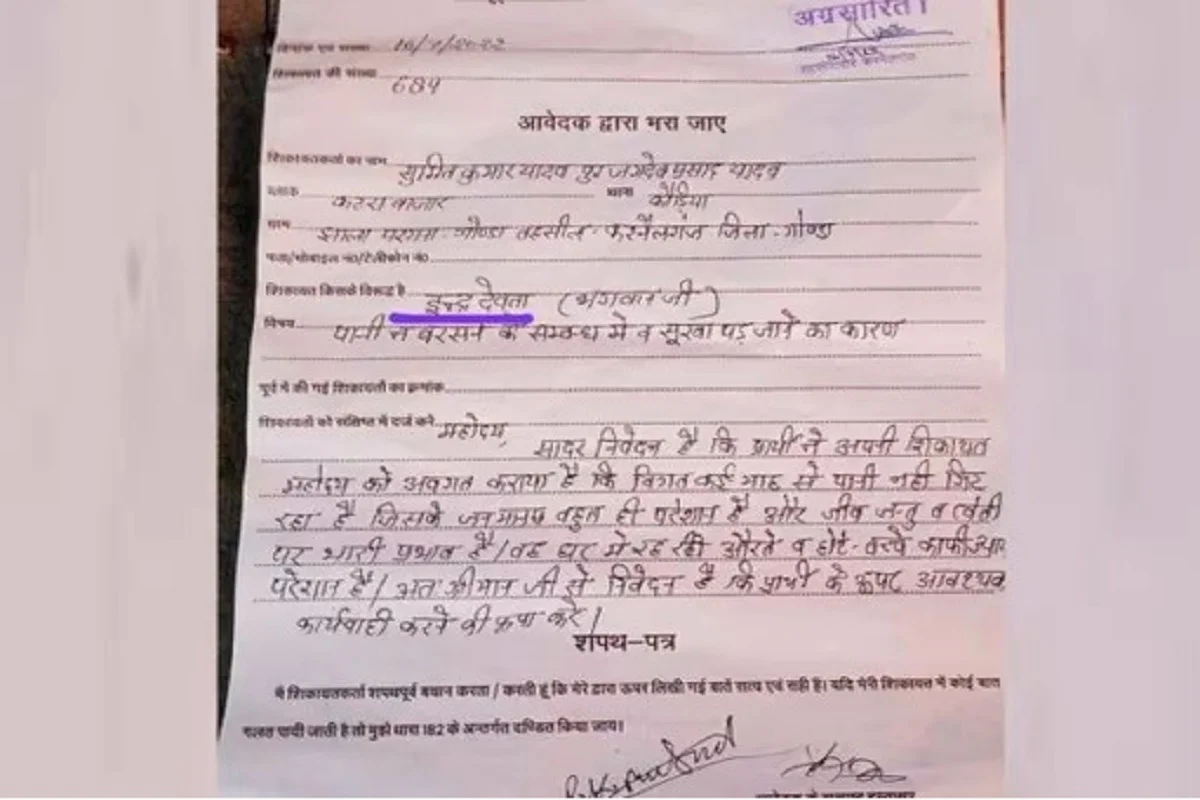 अग्रसारित।
दिनांक एवं संख्या 16/7/2022
शिकायत की संख्या 684
आवेदक द्वारा भरा जाए
शिकायतकर्ता का नाम सुमित कुमार यादव पुत्र जगदेव प्रसाद यादव
ब्लाक कटरा बाजार थाना कौडिया
ग्राम झाला परगना गोण्डा तहसील- करनैलगंज जिला- गोण्डा
पता/मोबाइल नं0/टेलीफोन नं0
शिकायत किसके विरूद्ध है इन्द्र देवता (भगवान जी)
विषय पानी न बरसने के सम्बन्ध मे व सूखा पड़ जाने का कारण
पूर्व में की गई शिकायतों का क्रमांक
शिकायतों को संक्षिप्त में दर्ज करे महोदय,
सादर निवेदन है कि प्रार्थी ने अपनी शिकायत
महोदय को अवगत कराया है कि विगत कई माह से पानी नही गिर
रहा है जिसके जनमानष बहुत ही परेशान है और जीव जन्तु व खेती
पर भारी प्रभाव है/ वह घर मे रह रही औरते व छोटे- बच्चे काफी
परेशान है/ अतः श्रीमान जी से निवेदन है कि प्रार्थी के ऊपर आवश्यक
कार्यवाही करने की कृपा करे/
शपथ–पत्र
मै शिकायतकर्ता शपथपूर्व बयान करता / करती हूं कि मेरे द्वारा ऊपर लिखी गई बाते सत्य एवं सही है। यदि मेरी शिकायत में कोई बात
गलत पायी जाती है तो मुझे धारा 182 के अन्तर्गत दण्डित किया जाय।